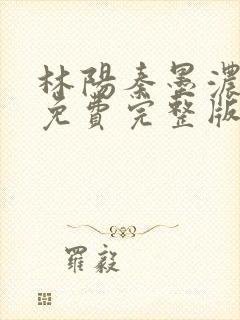 林陽秦墨濃
免費完整版
羅毅